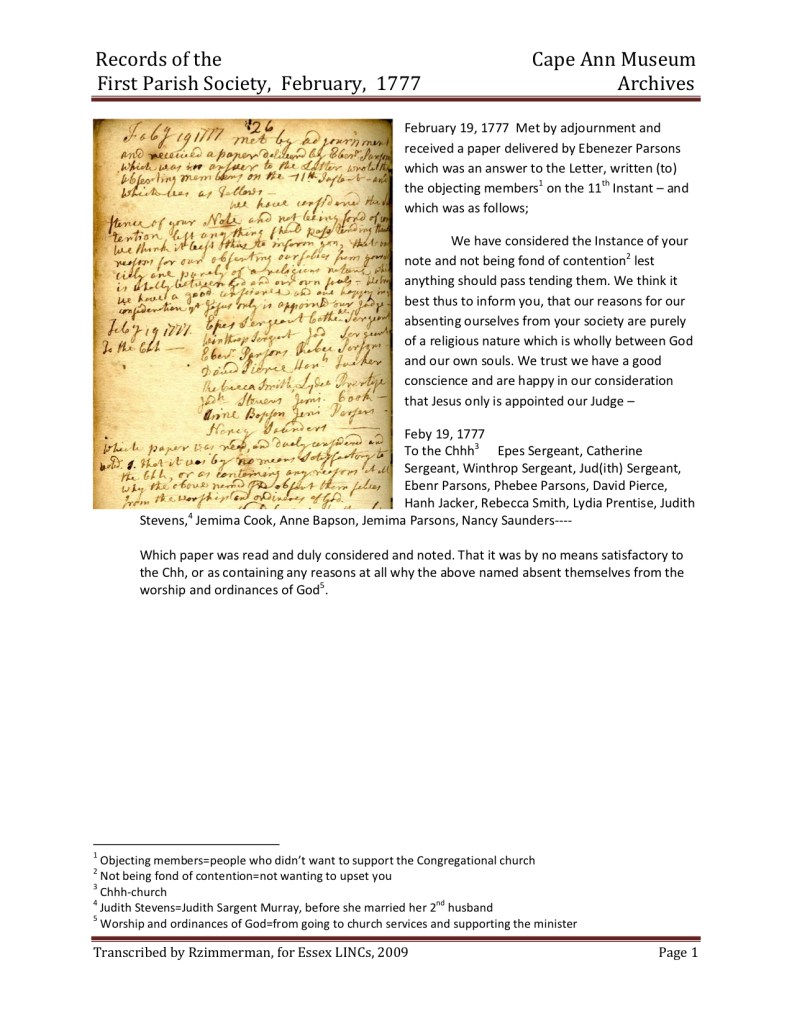 Records of the
First Parish Society, February, 1777
Cape Ann Museum
Archives
26
Feby 19 1777 met by adjournment
and received a paper delivered by Ebenr Parsons
which was an answer to the Letter
objecting members on the 11th
which was as follows
we have considered the
of your Note and not being fond of
tention, left any thing
We think it best to inform you, that
reasons for our absenting ourselves from your
ciety are purely of a religious nature
is wholly between God and our own souls
we have a good conscience and are happy in
consideration yt Jesus only is appointed our Judge
Feby 19 1777. Epes Sergeant
To the Chh Winthrop Sergant Jud Sergeant
Ebenr Parsons Phebee Parsons
David Pierce
Rebecca Smith, Lydia Prentise
Judh Stevens Jemi. Cook
Anne Bapson Jemi Parsons
Nancy Saunders
which paper was read, and duely considered and
that it was by no means Satisfactory to
the Chh, or as containing any reasons at all
why the above named absent themselves
from the worship and ordinances of God.
February 19, 1777 Met by adjournment and
received a paper delivered by Ebenezer Parsons
which was an answer to the Letter, written (to)
the objecting members1 on the 11th Instant – and
which was as follows;
We have considered the Instance of your
note and not being fond of contention2 lest
anything should pass tending them. We think it
best thus to inform you, that our reasons for our
absenting ourselves from your society are purely
of a religious nature which is wholly between God
and our own souls. We trust we have a good
conscience and are happy in our consideration
that Jesus only is appointed our Judge –
Feby 19, 1777
To the Chhh3 Epes Sergeant, Catherine
Sergeant, Winthrop Sergeant, Jud(ith) Sergeant,
Ebenr Parsons, Phebee Parsons, David Pierce,
Hanh Jacker, Rebecca Smith, Lydia Prentise, Judith
Stevens,4 Jemima Cook, Anne Bapson, Jemima Parsons, Nancy Saunders----
Which paper was read and duly considered and noted. That it was by no means satisfactory to
the Chh, or as containing any reasons at all why the above named absent themselves from the
worship and ordinances of God5.
1 Objecting members=people who didn’t want to support the Congregational church
2 Not being fond of contention=not wanting to upset you
3 Chhh-church
4 Judith Stevens=Judith Sargent Murray, before she married her 2nd husband
5 Worship and ordinances of God=from going to church services and supporting the minister
Transcribed by Rzimmerman, for Essex LINCs, 2009
Page 1